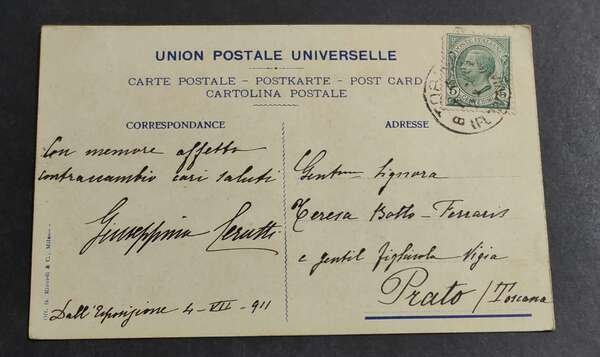 UNION POSTALE UNIVERSELLE
CARTE POSTALE - POSTKARTE - POST CARD
CARTOLINA POSTALE
CORRESPONDANCE
ADRESSE
Con memore affetto
contraccambio cari saluti
Giuseppina Cerutti
Dall'Esposizione 4-VII-911
Gent.ma Signora
Teresa Botto-Ferraris
e gentil figliuola Vigia
Prato / Toscana
Off. G. Ricordi & C., Milano
POSTE ITALIANE
5
5